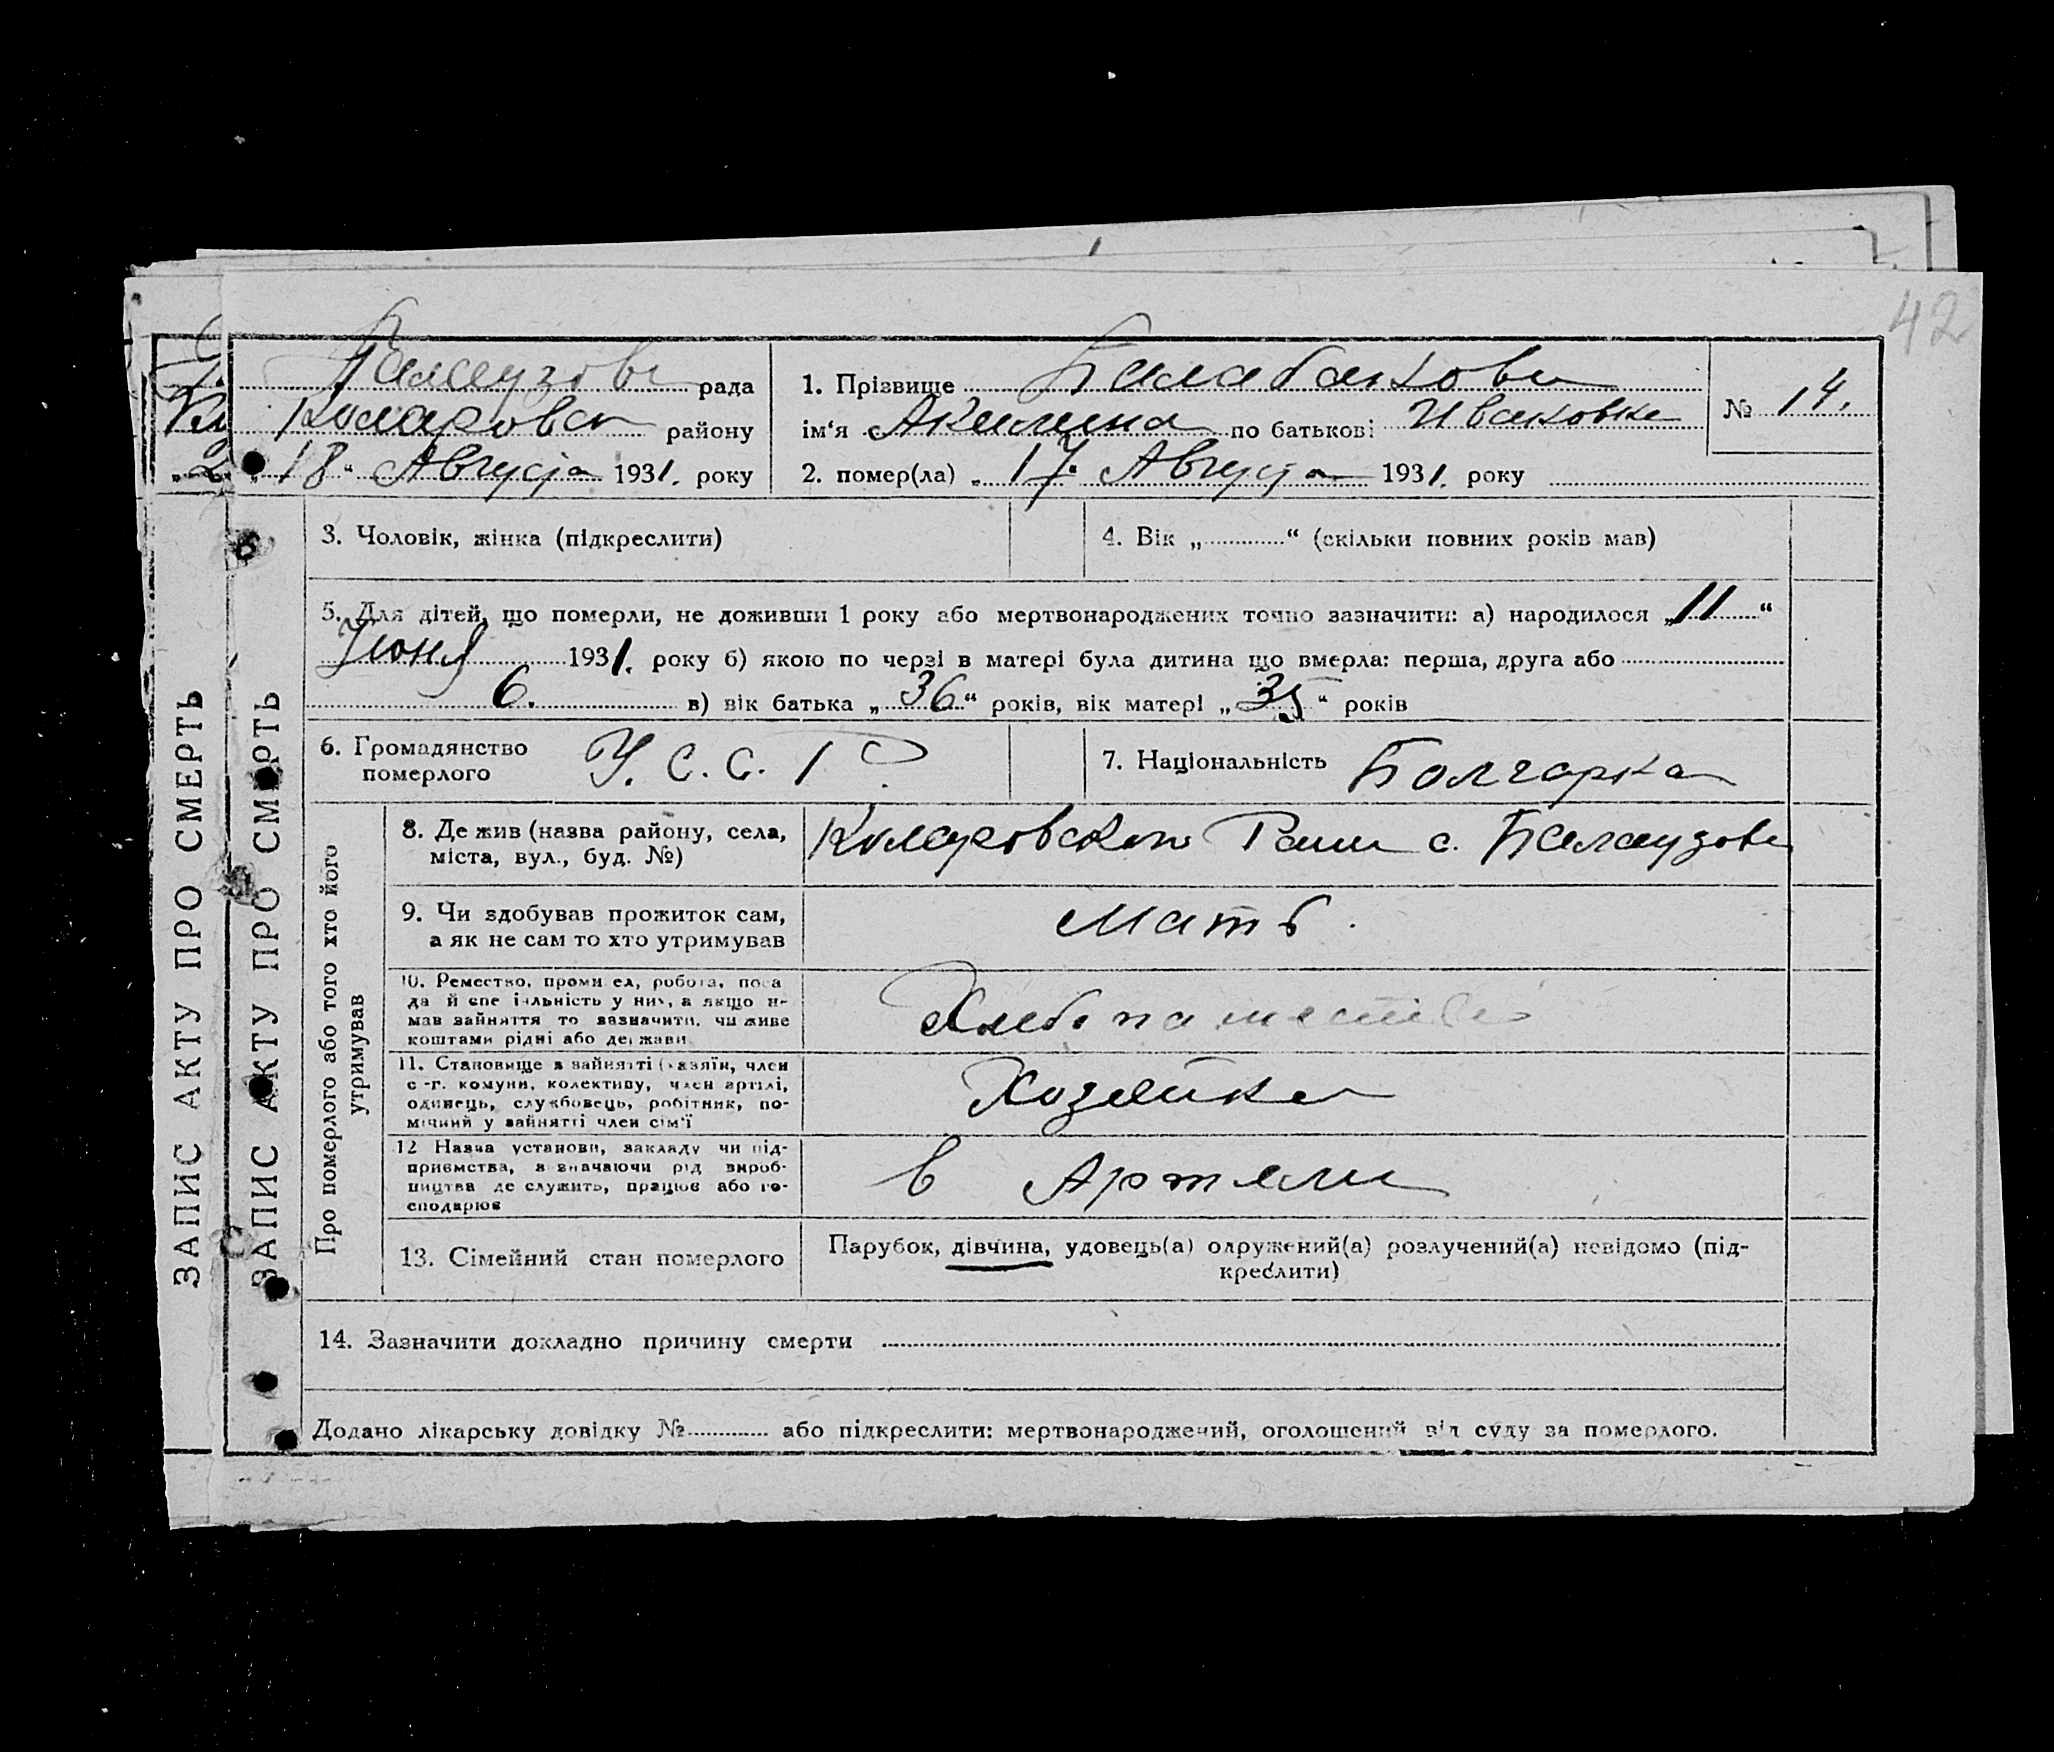 42
Балаузова рада
Коларовск району
„18“ Августа 1931. року
1. Прізвище Балабанова
ім‘я Акилина по батькові Ивановна
№ 14.
2. помер(ла) „17. Августа 1931. року
3. Чоловік, жінка (підкреслити)
4. Вік „.............“ (скільки повних років мав)
5. Для дітей, що померли, не доживши 1 року або мертвонароджених точно зазначити: а) народилося „11“
Июня 1931. року б) якою по черзі в матері була дитина що вмерла: перша, друга або
6. в) вік батька „36“ років, вік матері „35“ років
6. Громадянство
померлого
У.С.С.Р.
7. Національність Болгарка
Про померлого або того хто його
утримував
8. Де жив (назва району, села,
міста, вул., буд. №)
Коларовского Раии с. Балаузова
9. Чи здобував прожиток сам,
а як не сам то хто утримував
Мать.
10. Ремество, промисел, робота, поса
да й спеціяльність у них, а якщо н-
мав зайняття то зазначити, чи живе
коштами рідні або держави
Хлебопашество
11. Становище в зайнятті (хазяїн, член
с-г. комуни, колективу, член артілі,
одинець, службовець, робітник, по-
мічний у зайнятті член сім'ї
Хозяйка
12 Назва установи, закладу чи під-
приємства, зазначаючи рід вироб-
ництва де служить, працює або го-
сподарює
в Артели
13. Сімейний стан померлого
Парубок, дівчина, удовець(а) одружений(а) розлучений(а) невідомо (під-
креслити)
14. Зазначити докладно причину смерти
Додано лікарську довідку №............. або підкреслити: мертвонароджений, оголошений від суду за померлого.
ЗАПИС АКТУ ПРО СМЕРТЬ
ЗАПИС АКТУ ПРО СМЕРТЬ